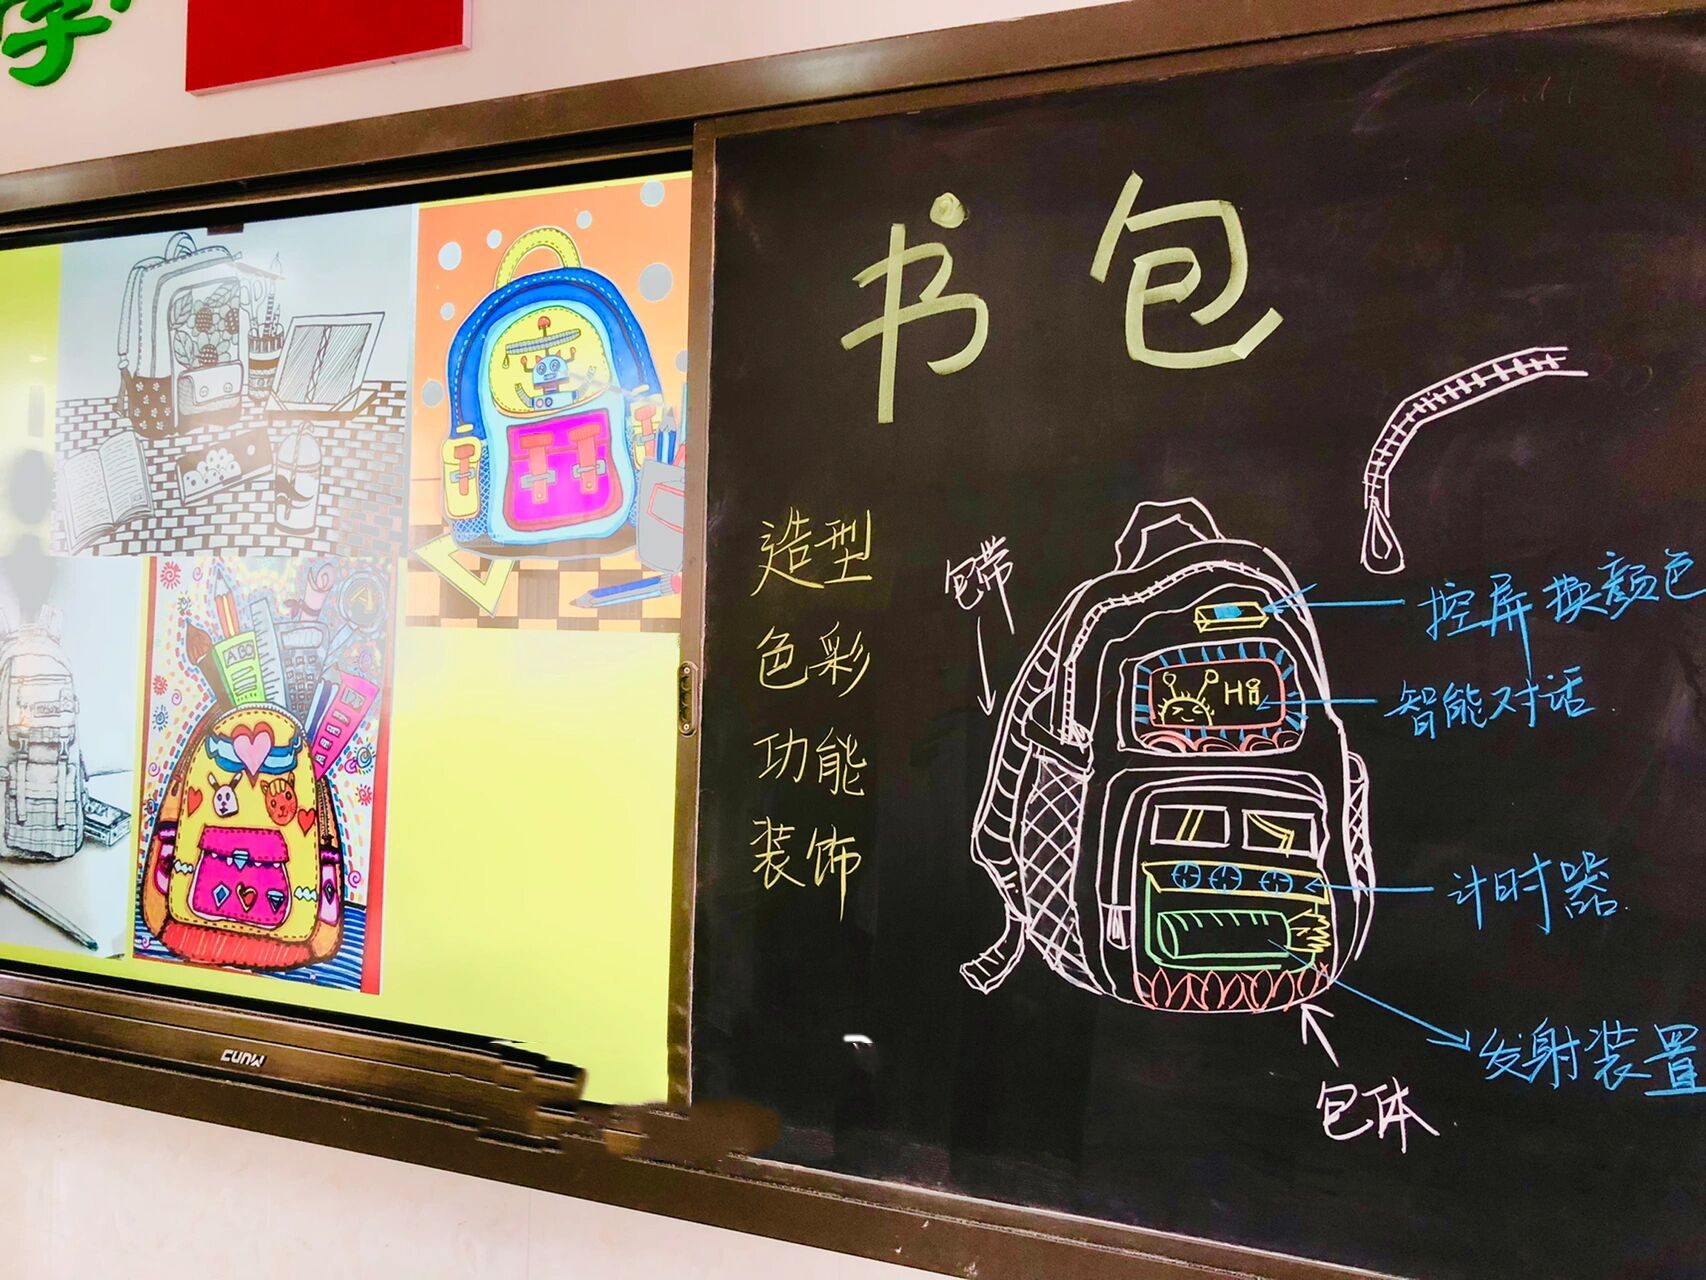 书包
造型
色彩
功能
装饰
包带
控屏换颜色
Hi
智能对话
计时器
发射装置
包体
CUNW